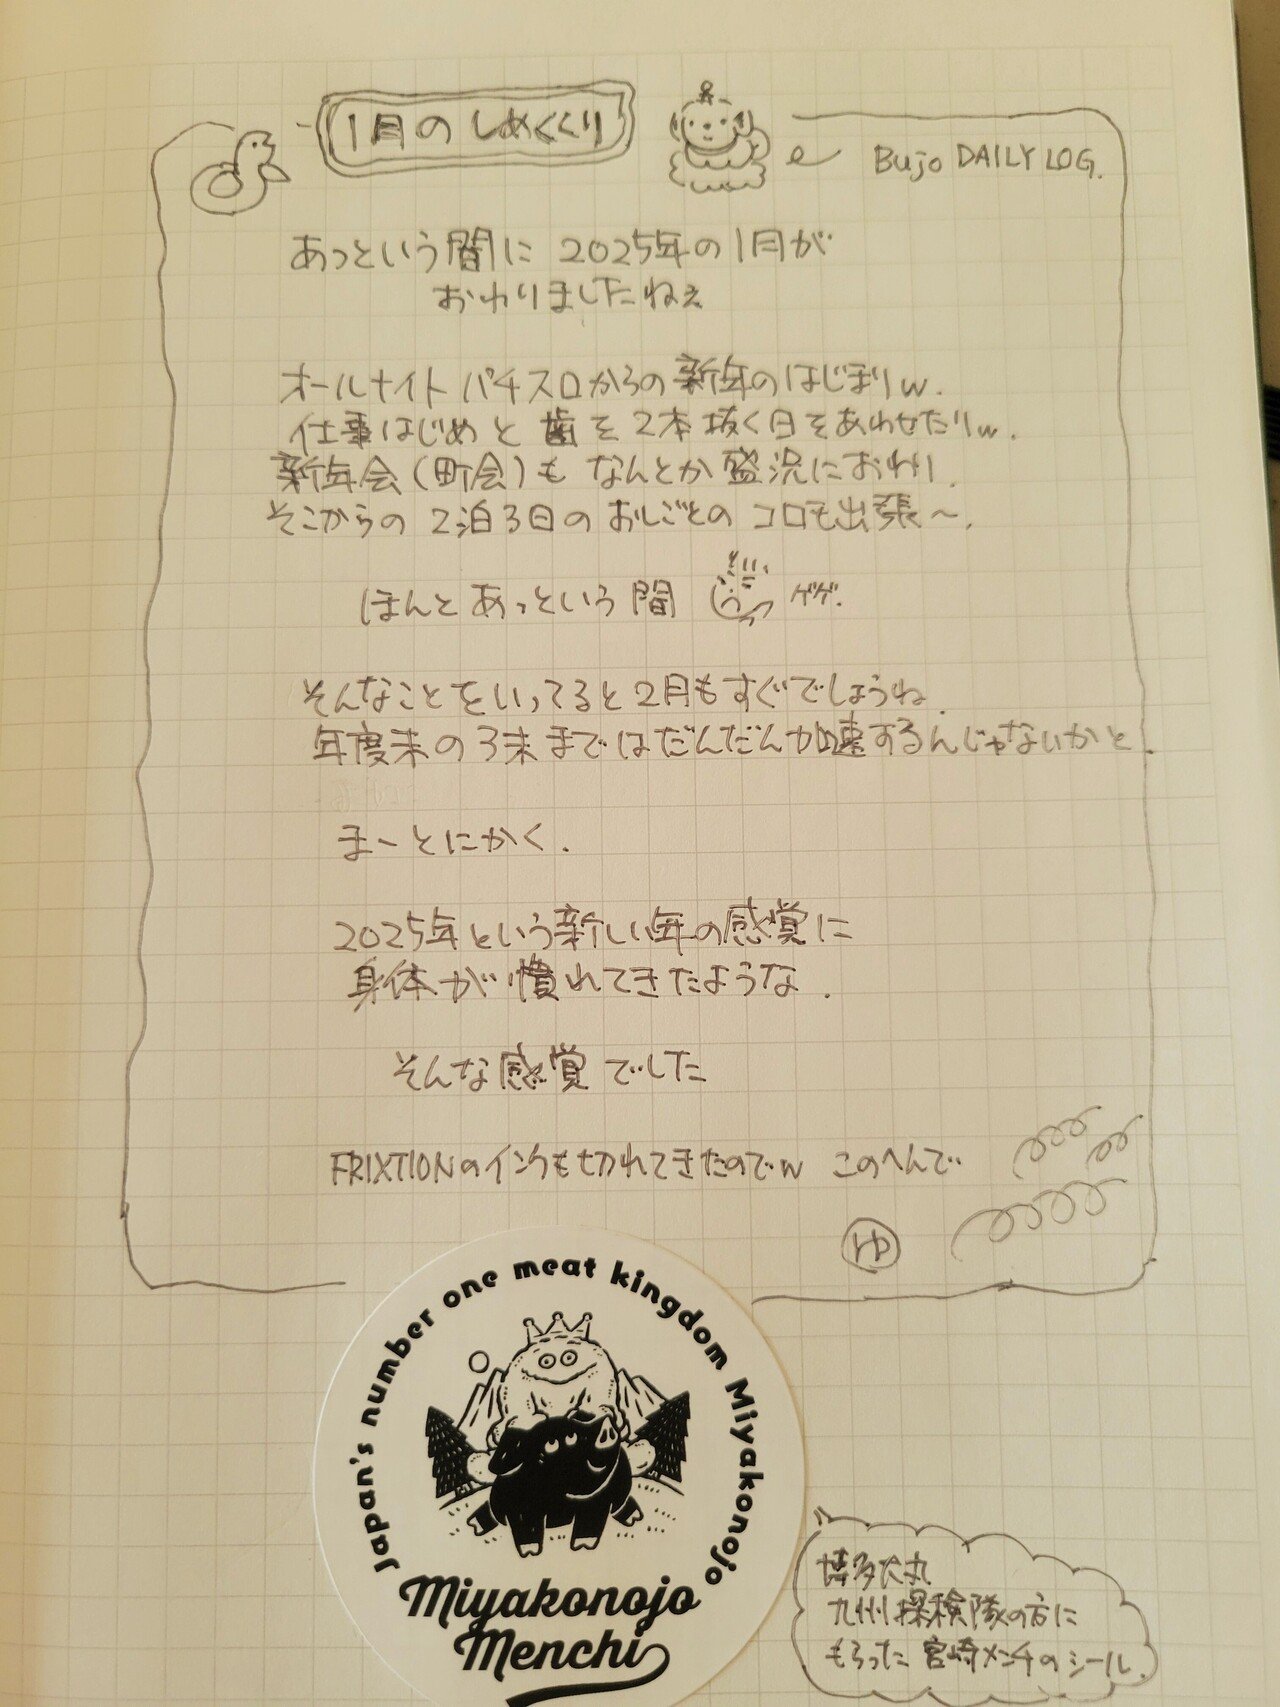 1月のしめくくり
Bujo DAILY LOG.
あっという間に 2025年の1月が
おわりましたねぇ
オールナイト パチスロからの新年のはじまりw.
仕事はじめと歯を2本抜く日をあわせたりw.
新年会(町会)もなんとか盛況におわり.
そこからの2泊3日のおしごとのコロも出張〜.
ほんとあっという間 ゲゲ.
そんなことをいってると2月もすぐでしょうね.
年度末の3末まではだんだん加速するんじゃないかと.
まーとにかく.
2025年という新しい年の感覚に
身体が慣れてきたような.
そんな感覚でした
FRIXTIONのインクも切れてきたのでw このへんで
ゆ
Japan's number one meat kingdom Miyakonojo
Miyakonojo
Menchi
博多大丸
九州探検隊の方に
もらった宮崎メンチのシール.